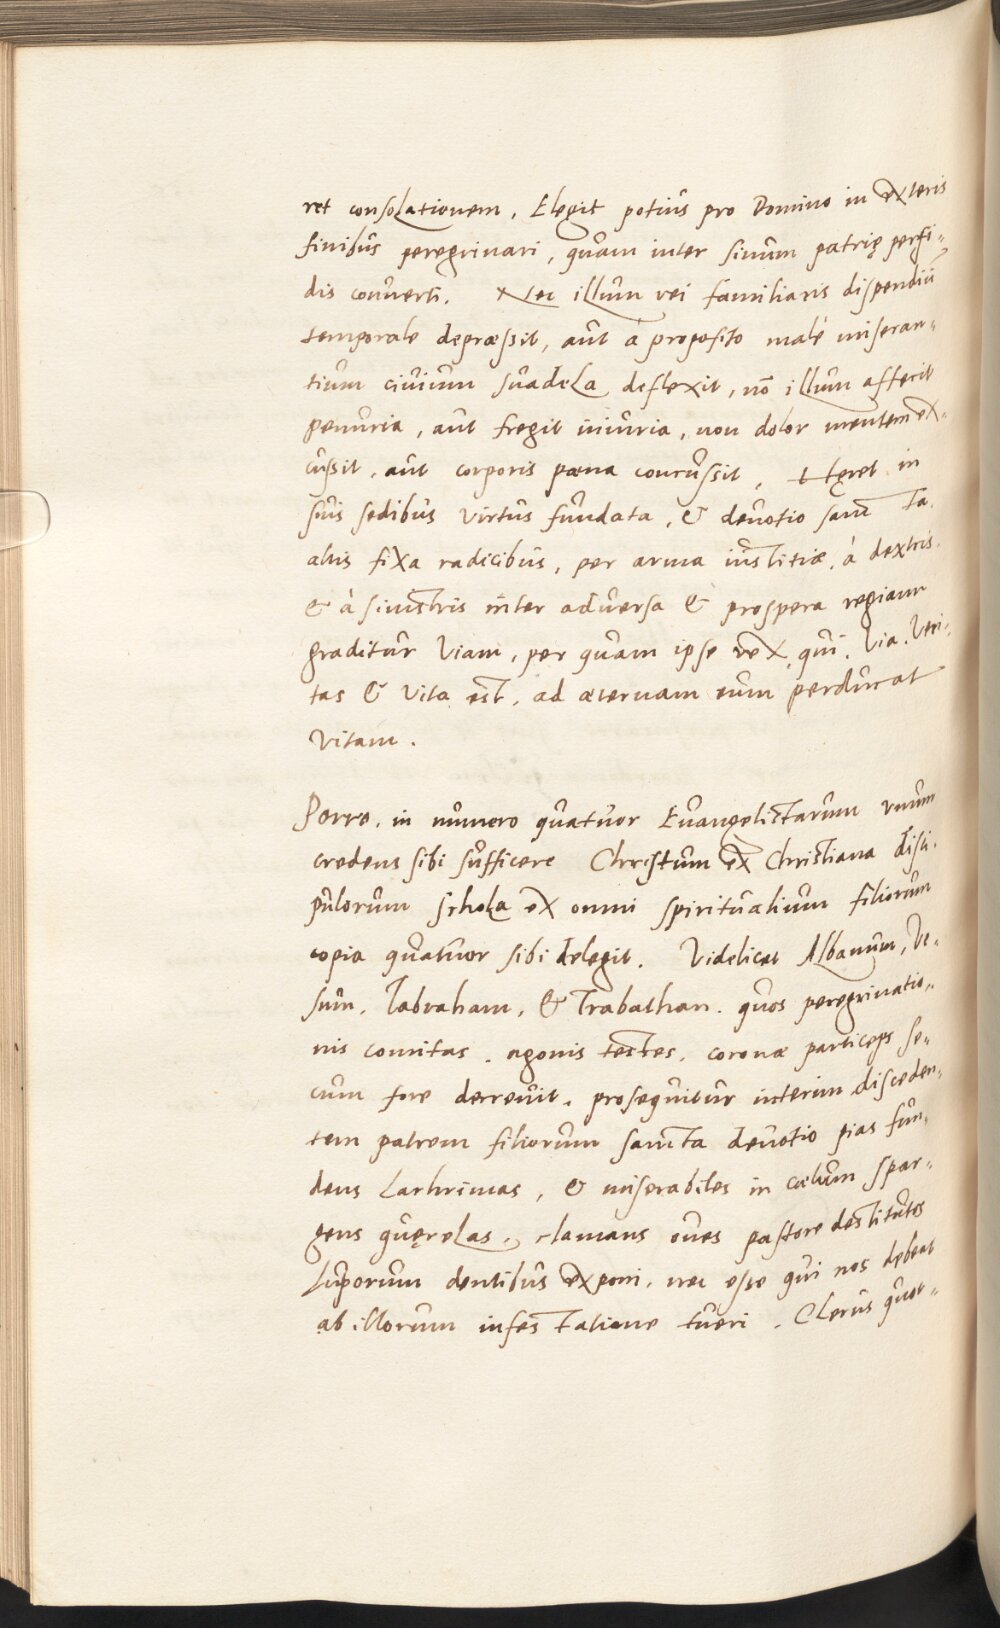 ret consolationem, Elegit potius pro Domino in exteris
finibus peregrinari, quam inter sinum patrię perfi-
dis converti. Nec illum rei familiaris dispendiū
temporale depræssit, aut à proposito malè miseran-
tium civium suadela deflexit, nō illum affecit
penuria, aut fregit iniuria, non dolor mentem ex-
cussit, aut corporis pæna concussit, Hęret in
suis sedibus virtus fundata, & devotio sancta
altis fixa radicibus, per arma iustitiæ, à dextris.
& à sinistris inter adversa & prospera regiam
graditur viam, per quam ipse rex, qui. Via. Veri-
tas & vita est, ad æternam eum perducat
vitam.
Porro, in numero quatuor Evangelistarum unum
credens sibi sufficere Christum ex Christiana disci-
pulorum schola ex omni spiritualium filiorum
copia quatuor sibi delegit. Videlicet Albanum, Ve-
sum, Tabraham, & Trabathan. quos peregrinatio-
nis comitas, agonis testes, coronæ particeps se-
cum fore decrevit. prosequitur interim disceden-
tem patrem filiorum sancta devotio pias fun-
dens lachrimas, & miserabiles in cœlum spar-
gens quęrelas, clamans oves pastore destitutes
Luporum dentibus exponi, nec esse qui nos dębeat
ab illorum infestatione tueri. Clerus quot-